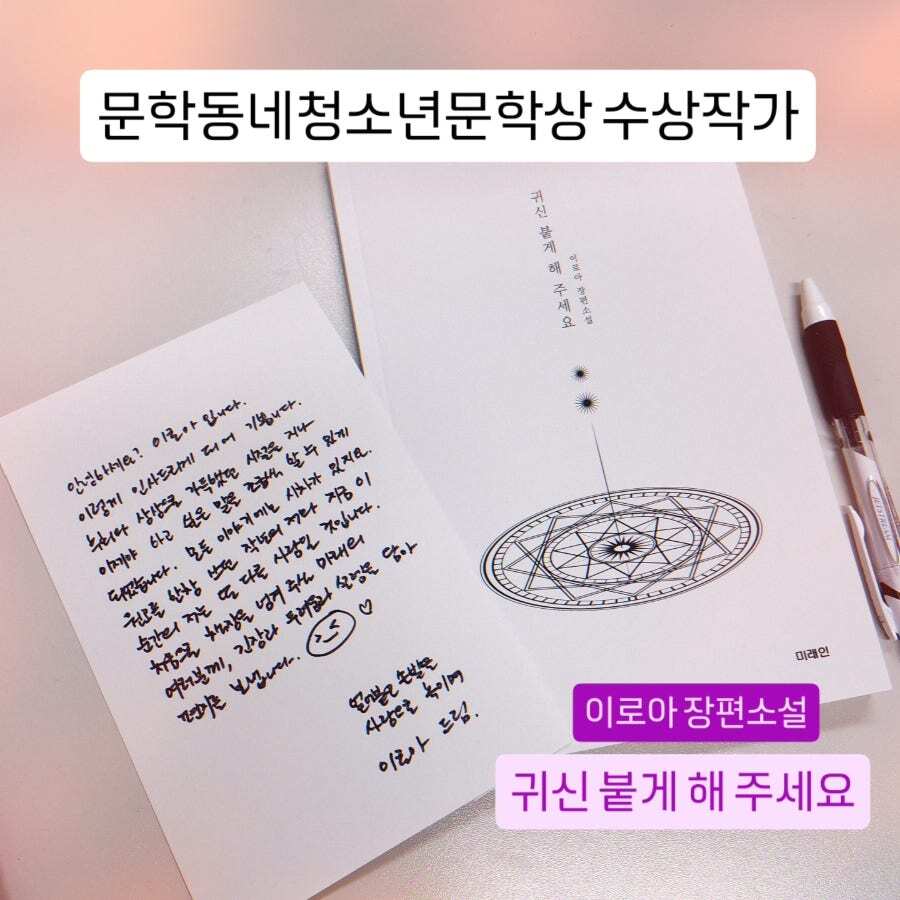 문학동네청소년문학상 수상작가
귀신 붙게 해 주세요
이로아 장편소설
안녕하세요? 이로아입니다.
이렇게 인사드리게 되어 기쁩니다.
상상으로 가득했던 시절을 지나
이제야 하고 싶은 말을 조금씩 할 수 있게
되었습니다. 모든 이야기에는 시차가 있지요.
원고를 한창 쓰던 작년의 저와 지금 이
순간의 저는 또 다른 사람일 것입니다.
처음으로 책장을 넘겨 주실 미래의
여러분께, 긴장과 두려움과 설렘을 담아
편지를 보냅니다.
얼어붙은 손발을
사랑으로 녹이며
이로아 드림.
미래인
이로아 장편소설
귀신 붙게 해 주세요